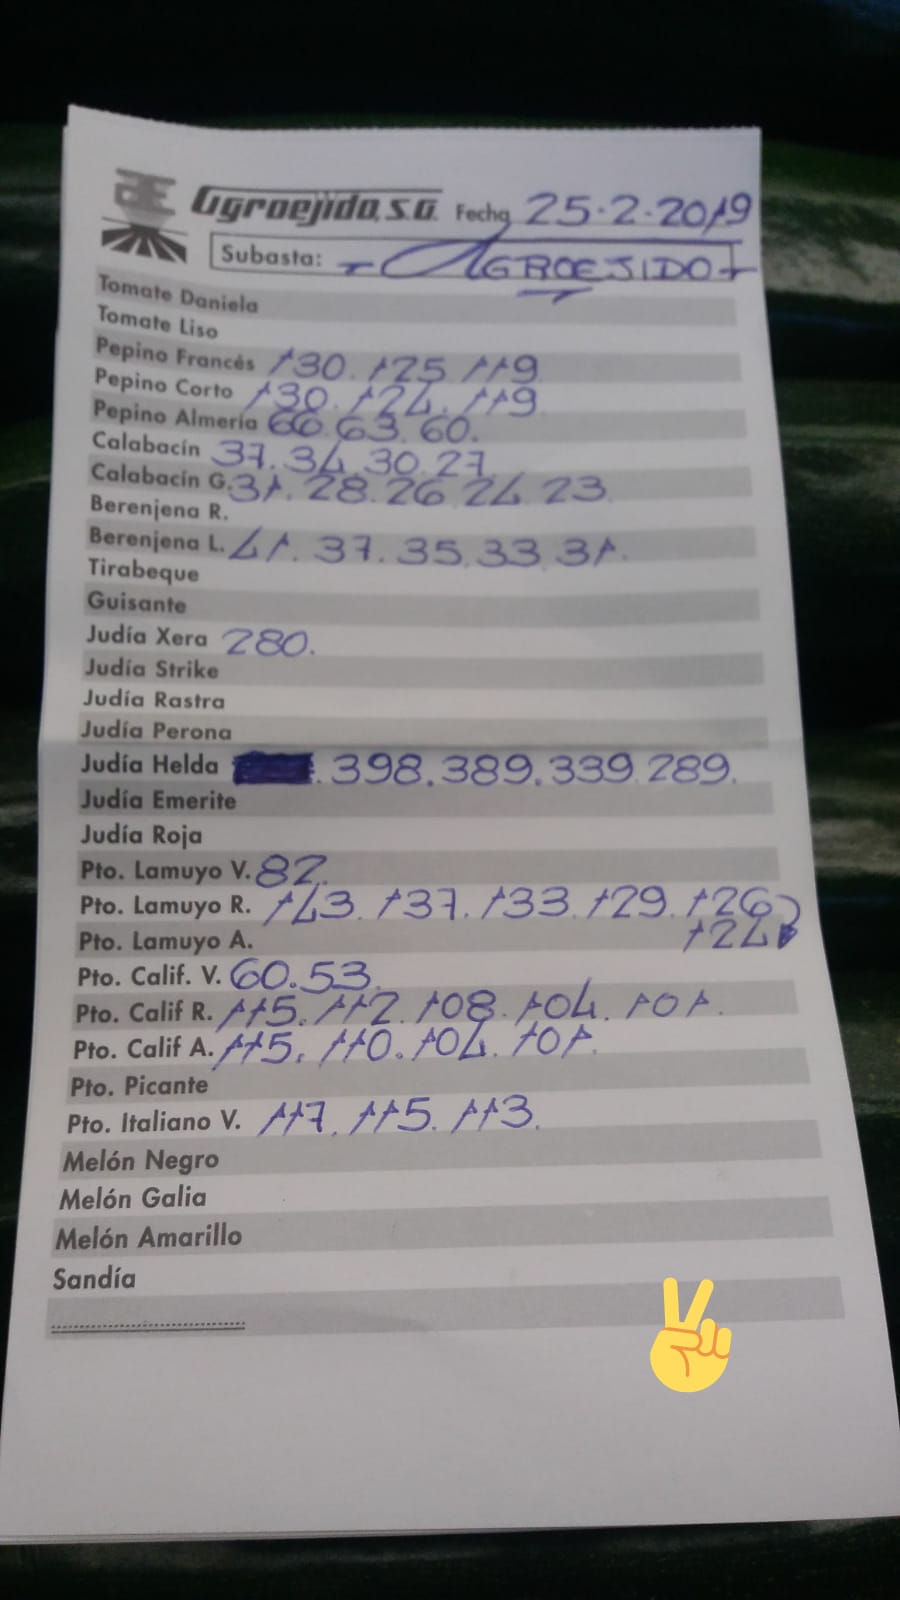 Agroejido, S.A. Fecha 25.2.2019
Subasta: - AGROEJIDO -
Tomate Daniela
Tomate Liso
Pepino Francés 130. 125. 119
Pepino Corto 130. 124. 119
Pepino Almería 66. 63. 60.
Calabacín 37. 34. 30. 27
Calabacín G. 31. 28. 26. 24. 23
Berenjena R.
Berenjena L. 41. 37. 35. 33. 31.
Tirabeque
Guisante
Judía Xera 280.
Judía Strike
Judía Rastra
Judía Perona
Judía Helda . 398. 389. 339. 289.
Judía Emerite
Judía Roja
Pto. Lamuyo V. 82.
Pto. Lamuyo R. 143. 137. 133. 129. 126
124
Pto. Lamuyo A.
Pto. Calif. V. 60. 53.
Pto. Calif R. 115. 112. 108. 104. 101.
Pto. Calif A. 115. 110. 104. 101.
Pto. Picante
Pto. Italiano V. 117. 115. 113.
Melón Negro
Melón Galia
Melón Amarillo
Sandía